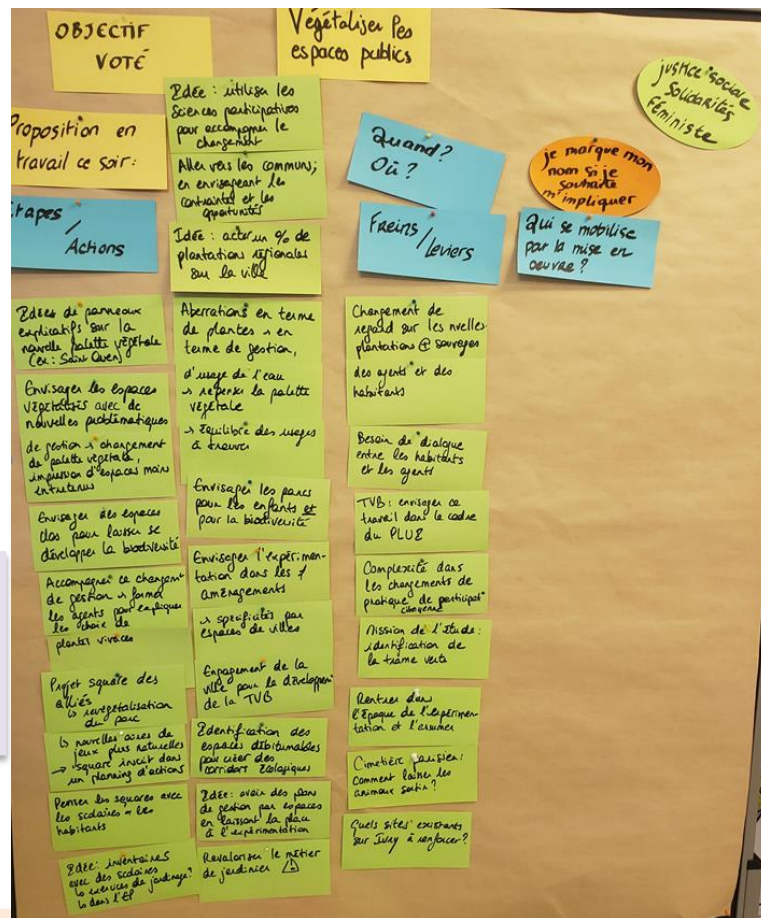 OBJECTIF
VOTÉ
Végétaliser les
espaces publics
justice sociale
Solidarités
Féministe
Proposition en
travail ce soir :
Idée : utiliser les
Sciences participatives
pour accompagner le
changement
Aller vers les communs ;
en envisageant les
contraintes et les
opportunités
Idée : acter un % de
plantations régionales
sur la ville
Quand ?
Où ?
je marque mon
nom si je
souhaite
m'impliquer
Etapes /
Actions
Freins /
Leviers
Qui se mobilise
par la mise en
oeuvre ?
Idées de panneaux
explicatifs sur la
nouvelle palette végétale
(ex : Saint Ouen)
Envisager les espaces
végétalisés avec de
nouvelles problématiques
de gestion → changement
de palette végétale,
impression d'espaces moins
entretenus
Envisager des espaces
clos pour laisser se
développer la biodiversité
Accompagner ce changemt
de gestion → former
les agents pour expliquer
les choix de
plantes vivaces
Projet square des
alliés
↳ revégétalisation
du parc
↳ nouvelles aires de
jeux plus naturelles
→ square inscrit dans
un planning d'actions
Penser les squares avec
les scolaires + les
habitants
Idée : inventaires
avec des scolaires
↳ exercices de jardinage ?
↳ dans l'EP
Aberrations en terme
de plantes → en
terme de gestion,
d'usage de l'eau
→ repenser la palette
végétale
→ Équilibre des usages
à trouver
Envisager les parcs
pour les enfants et
pour la biodiversité
Envisager l'expérimen-
tation dans les ≠
aménagements
→ spécificités par
espaces de villes
Engagement de la
ville pour le développemt
de la TVB
Identification des
espaces débitumables
pour créer des
corridors écologiques
Idée : avoir des plans
de gestion par espaces
en laissant la place
à l'expérimentation
Revaloriser le métier
de jardinier
Changement de
regard sur les nvelles
plantations @ sauvages
des agents et des
habitants
Besoin de dialogue
entre les habitants
et les agents
TVB : envisager ce
travail dans le cadre
du PLUI
Complexité dans
les changements de
pratique de participat°
citoyenne
Mission de l'étude :
identification de
la trame verte
Rentrer dans
l'Époque de l'expérimen-
tation et l'assumer
Cimetière parisien :
comment laisser les
animaux sortir ?
Quels sites existants
sur Ivry à renforcer ?